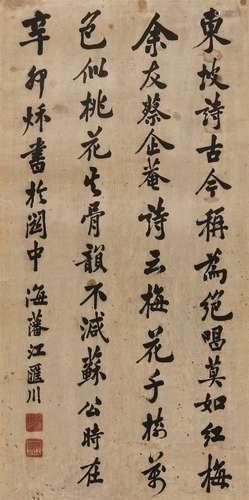 東坡詩古今稱為絕唱莫如紅梅
余友蔡企菴詩云梅花千樹萬
色似桃花其骨韻不減蘇公時在
辛卯秌書於闈中 海藩江匯川